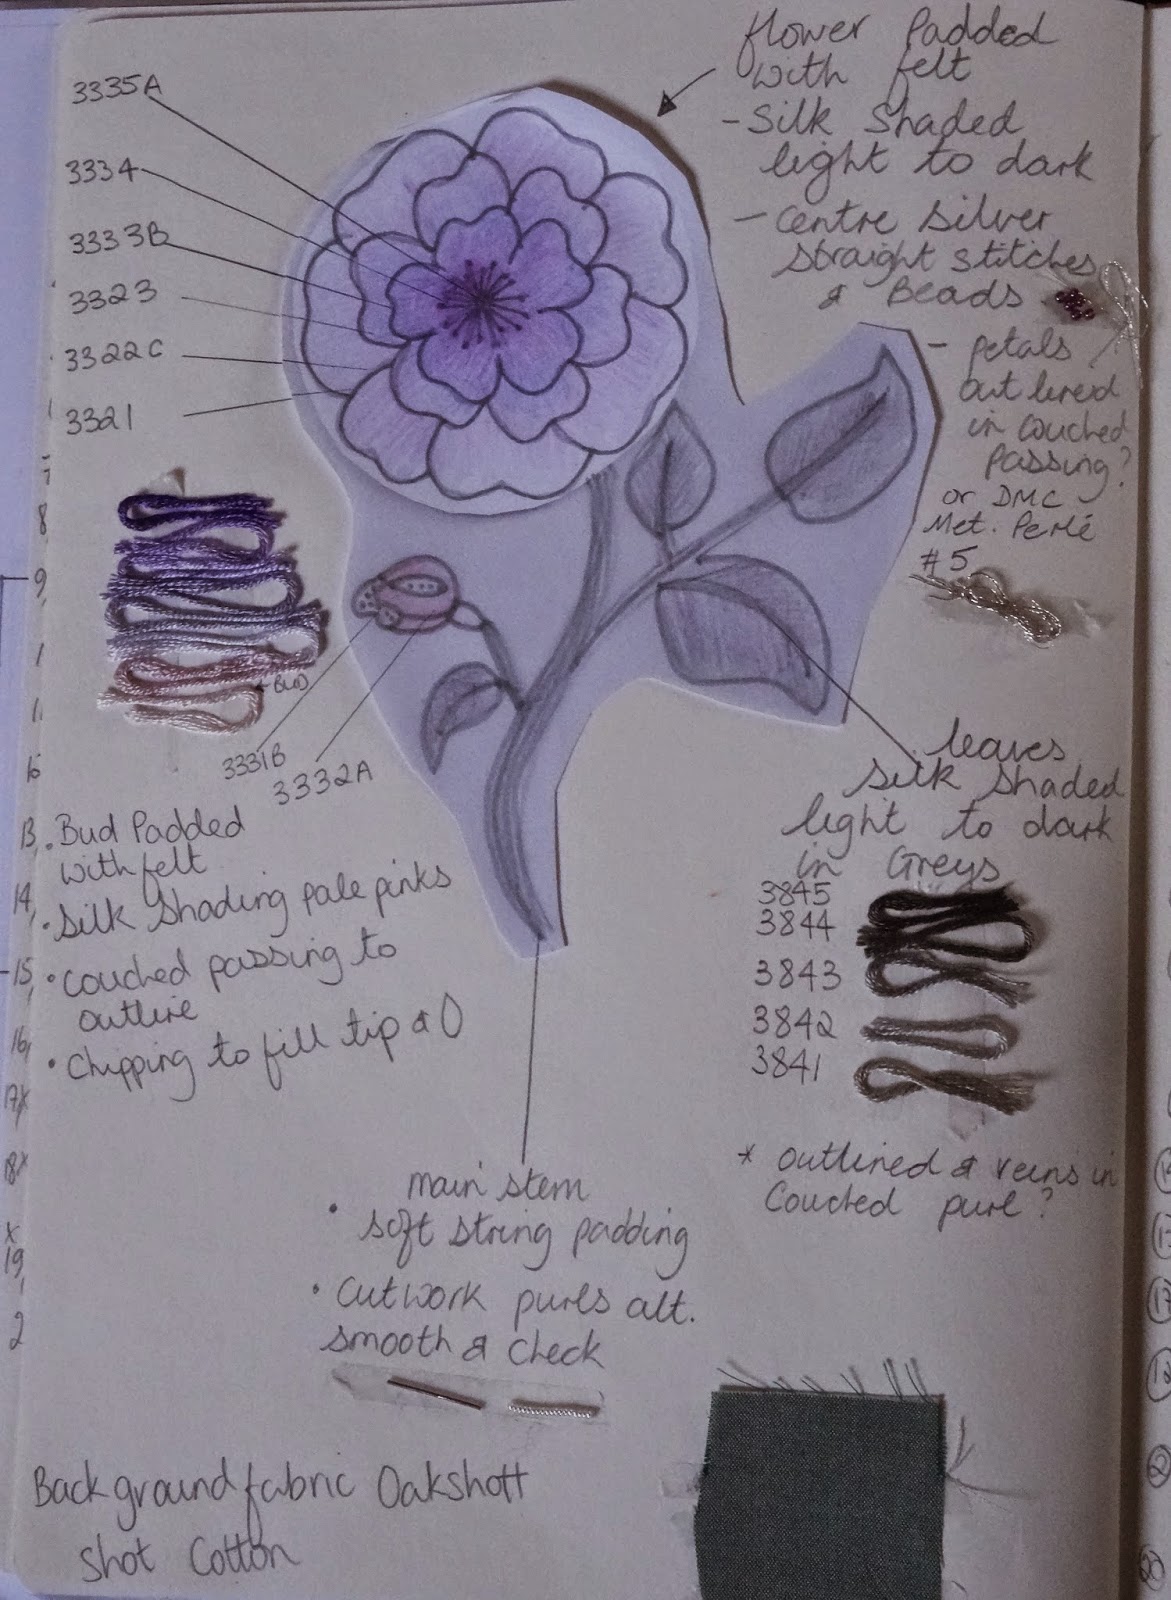 3335A
3334
3333B
3323
3322C
3321
flower Padded
with felt
- Silk Shaded
light to dark
- Centre Silver
Straight Stitches
& Beads
- petals
outlined
in couched
passing?
or DMC
Met. Perlé
#5
BUD
3331B
3332A
. Bud Padded
with felt
• Silk Shading pale pinks
• Couched passing to
outline
• Chipping to fill tip & 0
leaves
Silk Shaded
light to dark
in Greys
3845
3844
3843
3842
3841
* outlined & veins in
Couched purl?
main stem
• soft string padding
• Cutwork purls alt.
smooth & check
Background fabric Oakshott
Shot Cotton
7
8
9
1
13
14
15
16
17x
18x
x
19
2